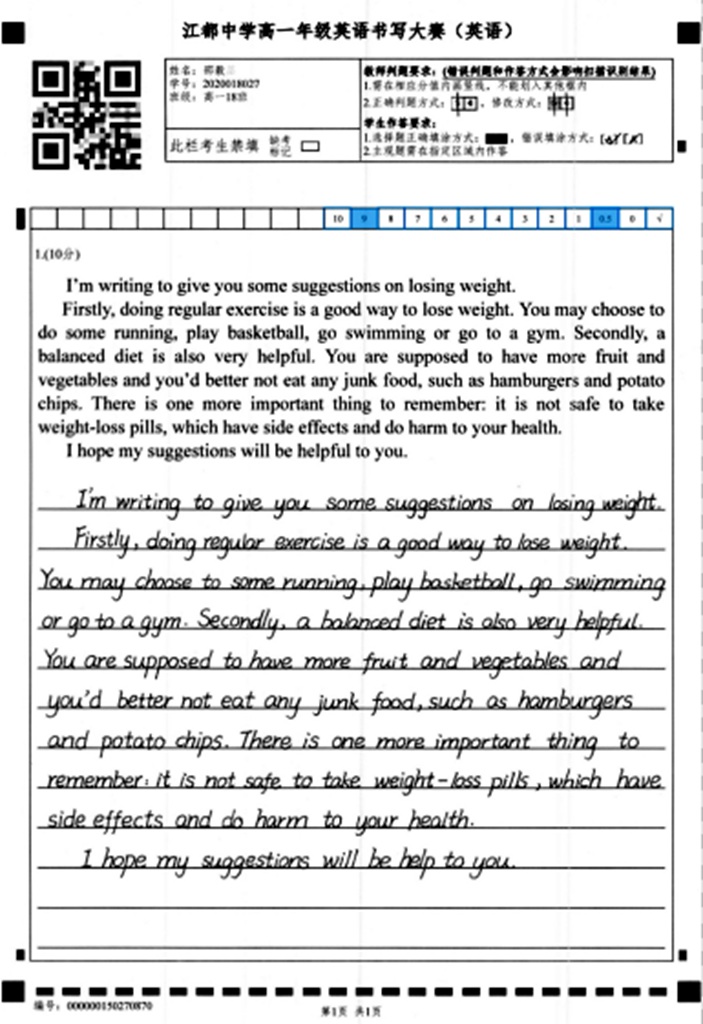 江都中学高一年级英语书写大赛（英语）
姓名：邵
学号：2020018027
班级：高一18班
此栏考生禁填 缺考标记
教师判题要求：(错误判题和作答方式会影响扫描识别结果)
1.需在相应分值内画竖线，不能划入其他框内
2.正确判题方式： ，修改方式：
学生作答要求：
1.选择题正确填涂方式： ，错误填涂方式：
2.主观题需在指定区域内作答
10 9 8 7 6 5 4 3 2 1 0.5 0 √
1.(10分)
I'm writing to give you some suggestions on losing weight.
Firstly, doing regular exercise is a good way to lose weight. You may choose to
do some running, play basketball, go swimming or go to a gym. Secondly, a
balanced diet is also very helpful. You are supposed to have more fruit and
vegetables and you'd better not eat any junk food, such as hamburgers and potato
chips. There is one more important thing to remember: it is not safe to take
weight-loss pills, which have side effects and do harm to your health.
I hope my suggestions will be helpful to you.
I'm writing to give you some suggestions on losing weight.
Firstly, doing regular exercise is a good way to lose weight.
You may choose to some running, play basketball, go swimming
or go to a gym. Secondly, a balanced diet is also very helpful.
You are supposed to have more fruit and vegetables and
you'd better not eat any junk food, such as hamburgers
and potato chips. There is one more important thing to
remember: it is not safe to take weight-loss pills, which have
side effects and do harm to your health.
I hope my suggestions will be help to you.
编号：000000150270870
第1页 共1页